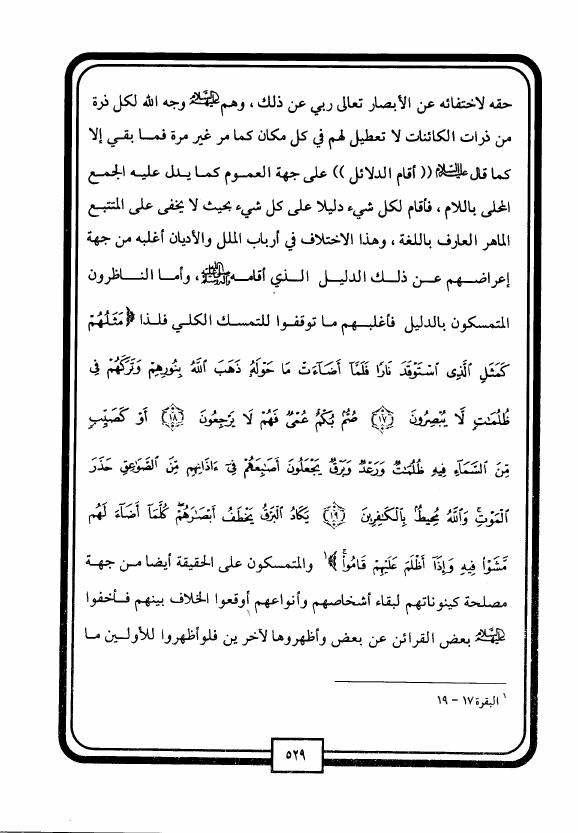 حقه لاختفائه عن الأبصار تعالى ربي عن ذلك ، وهم عليهم السلام وجه الله لكل ذرة
من ذرات الكائنات لا تعطيل لهم في كل مكان كما مر غير مرة فما بقي إلا
كما قال عليه السلام (( أقام الدلائل )) على جهة العموم كما يدل عليه الجمع
المحلى باللام ، فأقام لكل شيء دليلا على كل شيء بحيث لا يخفى على المتتبع
الماهر العارف باللغة ، وهذا الاختلاف في أرباب الملل والأديان أغلبه من جهة
إعراضهم عن ذلك الدليل الذي أقامه صلى الله عليه وآله ، وأما الناظرون
المتمسكون بالدليل فأغلبهم ما توقفوا للتمسك الكلي فلذا ﴿ مَثَلُهُمْ
كَمَثَلِ ٱلَّذِى ٱسْتَوْقَدَ نَارًا فَلَمَّآ أَضَآءَتْ مَا حَوْلَهُۥ ذَهَبَ ٱللَّهُ بِنُورِهِمْ وَتَرَكَهُمْ فِى
ظُلُمَٰتٍ لَّا يُبْصِرُونَ ﴿١٧﴾ صُمٌّۢ بُكْمٌ عُمْىٌ فَهُمْ لَا يَرْجِعُونَ ﴿١٨﴾ أَوْ كَصَيِّبٍ
مِّنَ ٱلسَّمَآءِ فِيهِ ظُلُمَٰتٌ وَرَعْدٌ وَبَرْقٌ يَجْعَلُونَ أَصَٰبِعَهُمْ فِىٓ ءَاذَانِهِم مِّنَ ٱلصَّوَٰعِقِ حَذَرَ
ٱلْمَوْتِ ۚ وَٱللَّهُ مُحِيطٌۢ بِٱلْكَٰفِرِينَ ﴿١٩﴾ يَكَادُ ٱلْبَرْقُ يَخْطَفُ أَبْصَٰرَهُمْ ۖ كُلَّمَآ أَضَآءَ لَهُم
مَّشَوْا۟ فِيهِ وَإِذَآ أَظْلَمَ عَلَيْهِمْ قَامُوا۟ ۚ ﴾ ١ والمتمسكون على الحقيقة أيضا من جهة
مصلحة كينوناتهم لبقاء أشخاصهم وأنواعهم أوقعوا الخلاف بينهم فأخفوا
عليهم السلام بعض القرائن عن بعض وأظهروها لآخرين فلو أظهروا للأولين ما
١ البقرة ١٧ – ١٩
٥٢٩